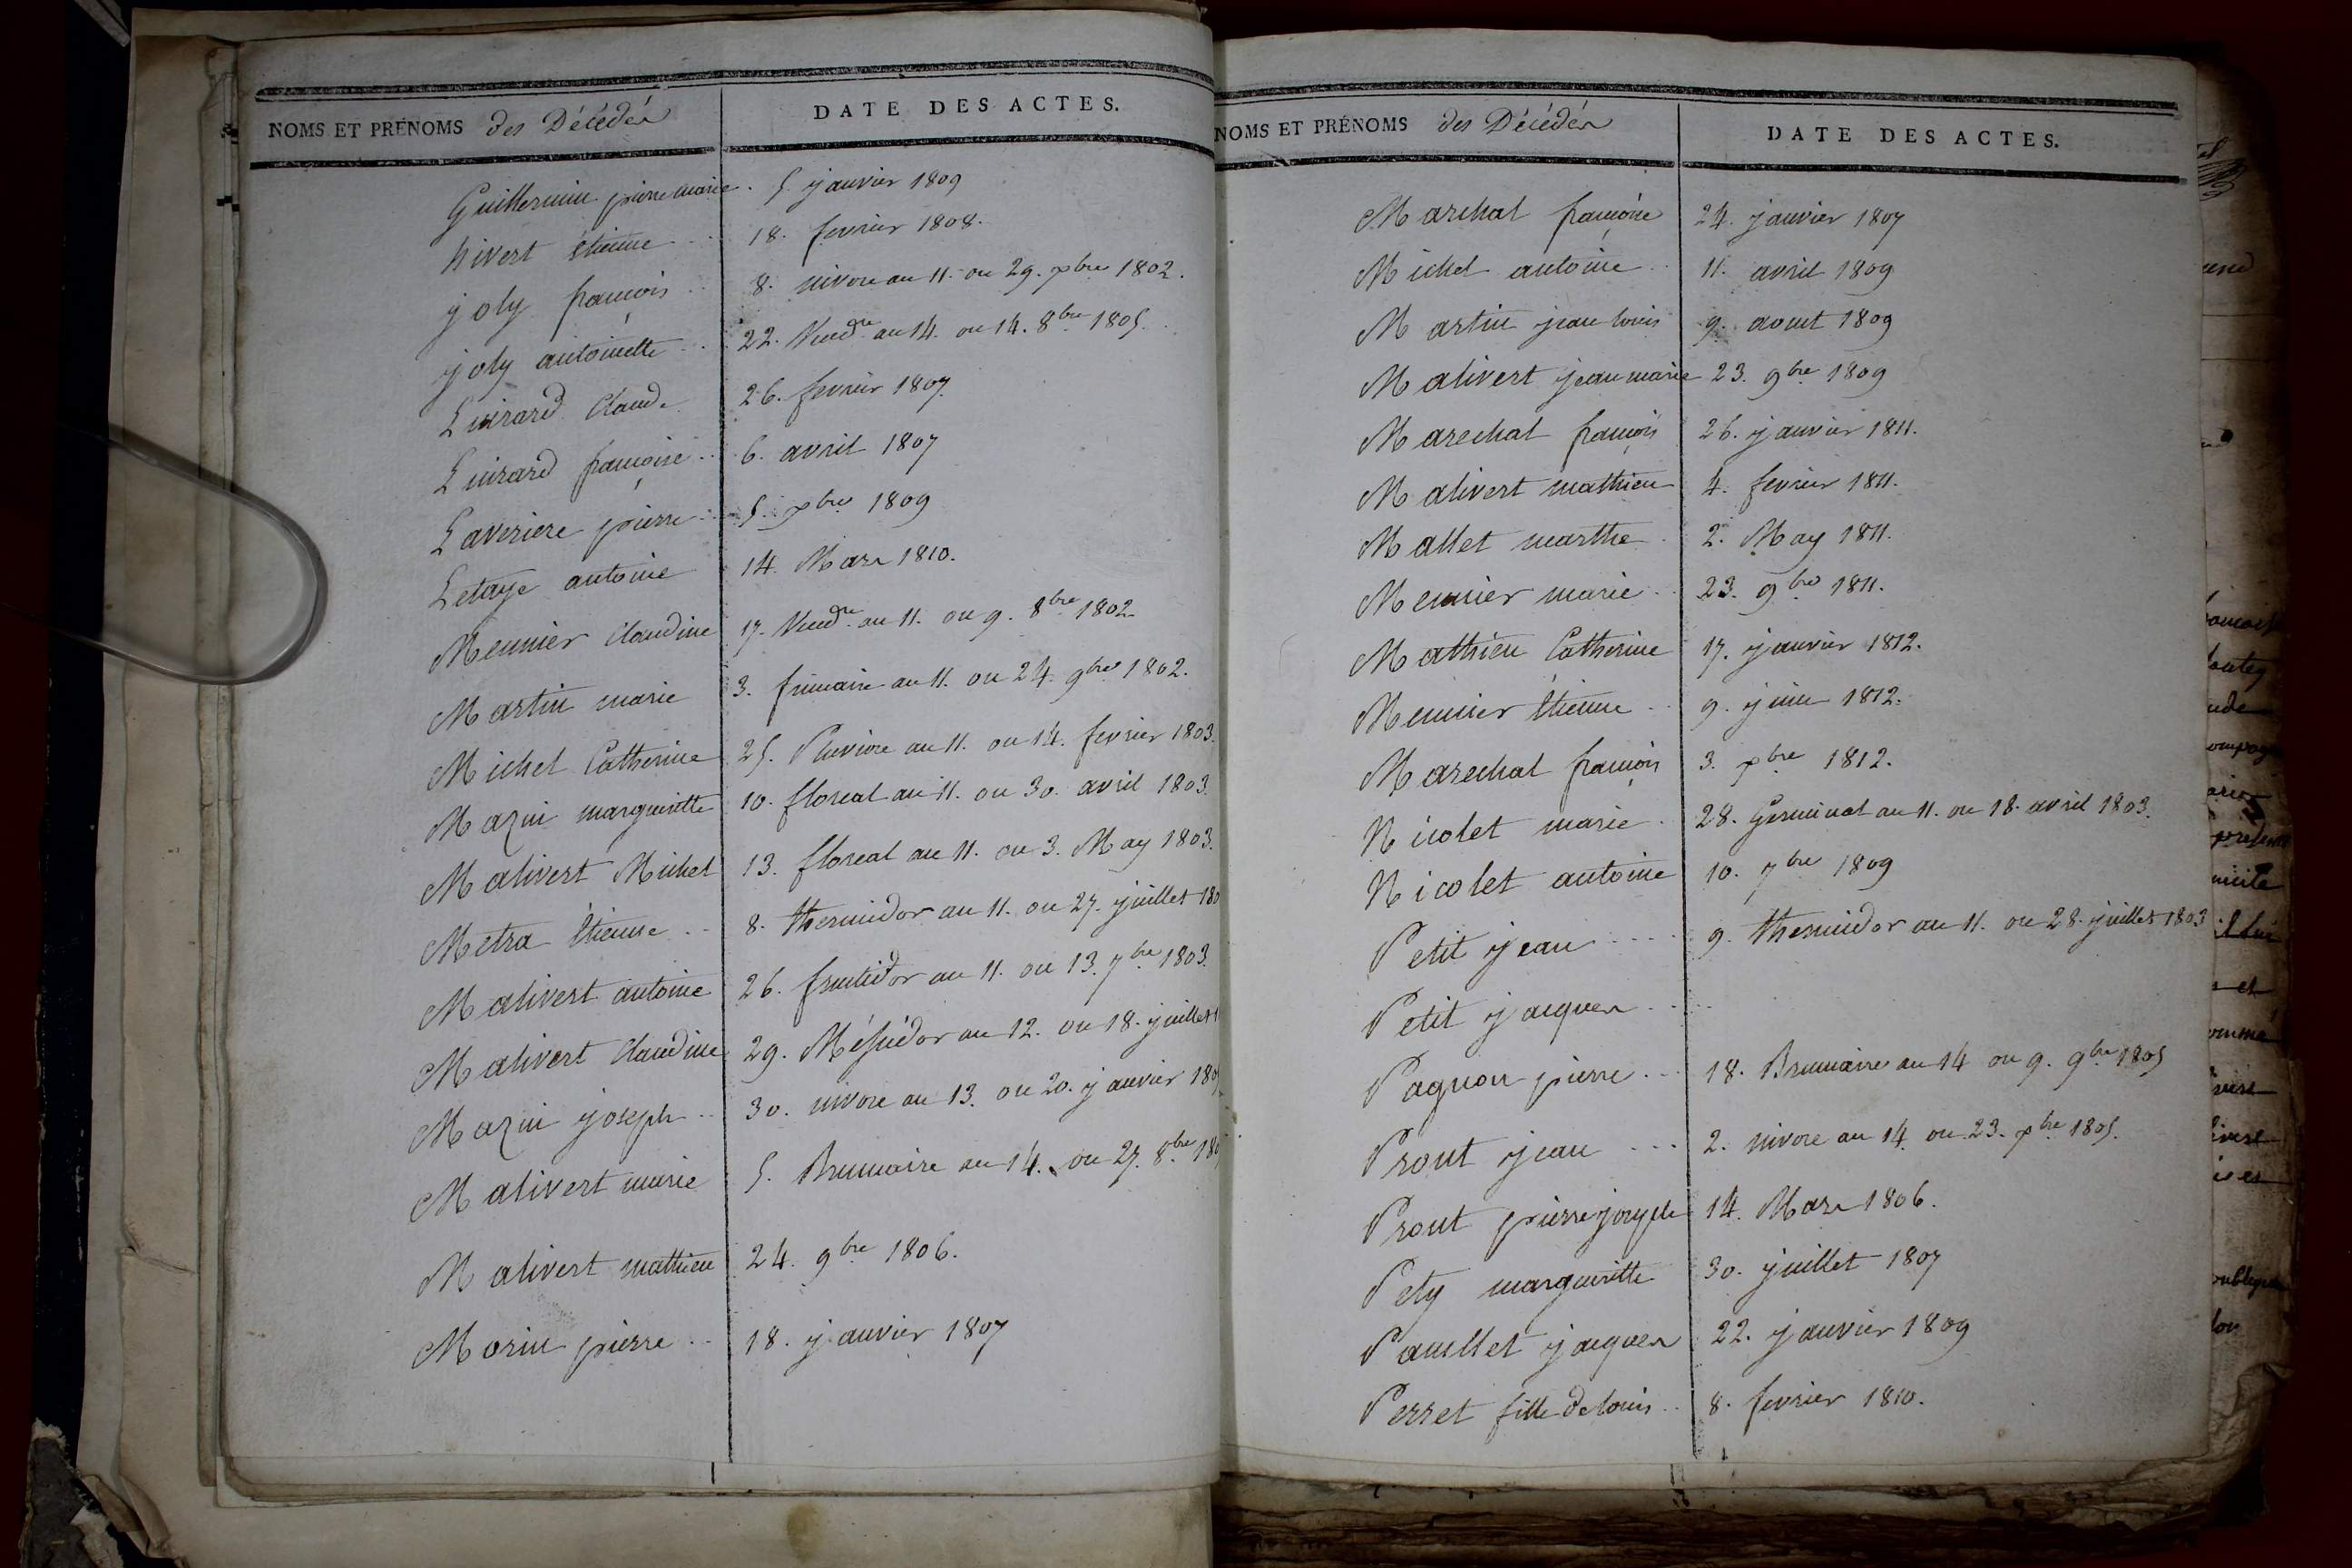 NOMS ET PRÉNOMS des Décédés DATE DES ACTES.
Guillermin pierre marie . 5 janvier 1809
hivert étienne 18. fevrier 1808.
joly francois 8. nivose an 11. ou 29. xbre 1802.
joly antoinette 22. Vendre an 14. ou 14. 8bre 1805.
Luirard Claude 26. fevrier 1807.
Luirard francoise 6. avril 1807
Laveriere pierre 5. xbre 1809
Letaye antoine 14. Mars 1810.
Meunier Claudine 17. Vendre an 11. ou 9. 8bre 1802
Martin marie 3. frimaire an 11. ou 24. 9bre 1802.
Michel Catherine 25. Pluviose an 11. ou 14. fevrier 1803.
Mazui margueritte 10. floreal an 11. ou 30. avril 1803.
Malivert Michel 13. floreal an 11. ou 3. May 1803.
Metra étienne 8. thermidor an 11. ou 27. juillet 180
Malivert antoine 26. fructidor an 11. ou 13. 7bre 1803.
Malivert Claudine 29. Méssidor an 12. ou 18. juillet 1
Mazui joseph 30. nivose an 13. ou 20. janvier 180
Malivert marie 5. Brumaire an 14. ou 27. 8bre 180
Malivert mathieu 24. 9bre 1806.
Morin pierre 18. janvier 1807
NOMS ET PRÉNOMS des Décédés DATE DES ACTES.
Marchal francoise 24. janvier 1807
Michel antoine 11. avril 1809
Martin jean louis 9. aout 1809
Malivert jean marie 23. 9bre 1809
Marechal francois 26. janvier 1811.
Malivert mathieu 4. fevrier 1811.
Mallet marthe 2. May 1811.
Meunier marie 23. 9bre 1811.
Mathieu Catherine 17. janvier 1812.
Meunier étienne 9. juin 1812.
Marechal francois 3. xbre 1812.
Nicolet marie 28. Germinal an 11. ou 18. avril 1803.
Nicolet antoine 10. 7bre 1809
Petit jean 9. thermidor an 11. ou 28. juillet 1803
Petit jacques
Pagnon pierre 18. Brumaire an 14 ou 9. 9bre 1805
Prout jean 2. nivose an 14. ou 23. xbre 1805.
Prout pierre joseph 14. Mars 1806.
Pety margueritte 30. juillet 1807
Pauillet jacques 22. janvier 1809
Perret fille de louis 8. fevrier 1810.